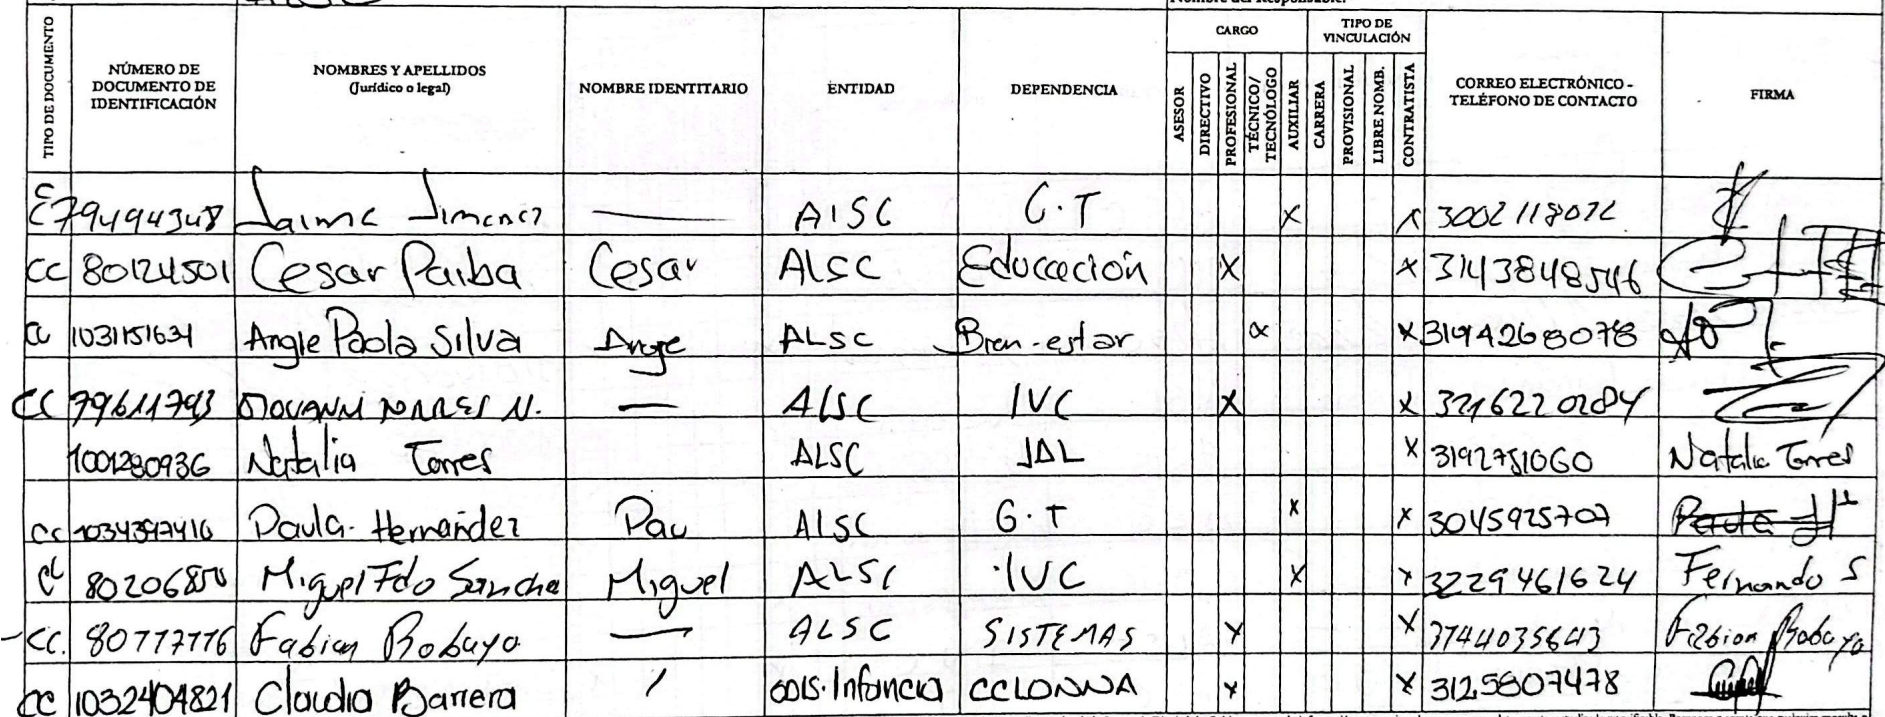 TIPO DE DOCUMENTO
NÚMERO DE DOCUMENTO DE IDENTIFICACIÓN
NOMBRES Y APELLIDOS (Jurídico o legal)
NOMBRE IDENTITARIO
ENTIDAD
DEPENDENCIA
CARGO
ASESOR
DIRECTIVO
PROFESIONAL
TÉCNICO/ TECNÓLOGO
AUXILIAR
TIPO DE VINCULACIÓN
CARRERA
PROVISIONAL
LIBRE NOMB.
CONTRATISTA
CORREO ELECTRÓNICO - TELÉFONO DE CONTACTO
FIRMA
79494348 Jaime Jimenez — ALSC G.T x x 3002118072
CC 80124501 Cesar Paiba Cesar ALSC Educcación x x 3143848546
CC 1031151631 Angie Paola Silva Angie ALSC Bien-estar x x 3194268078
CC 79611793 N. — ALSC IVC x x 3216220284
1001280936 Natalia Torres ALSC JAL x 3192751060 Natalia Torres
CC 1034397410 Paula Hernandez Pau ALSC G.T x x 3045925707
CC Miguel Fdo Sanche Miguel ALSC IVC x x 3229461624 Fernando S
CC. 80777776 Fabian Robayo — ALSC SISTEMAS x x Fabian Robayo
CC 1032404821 Claudia Barrera / Infancia x x 3125807478